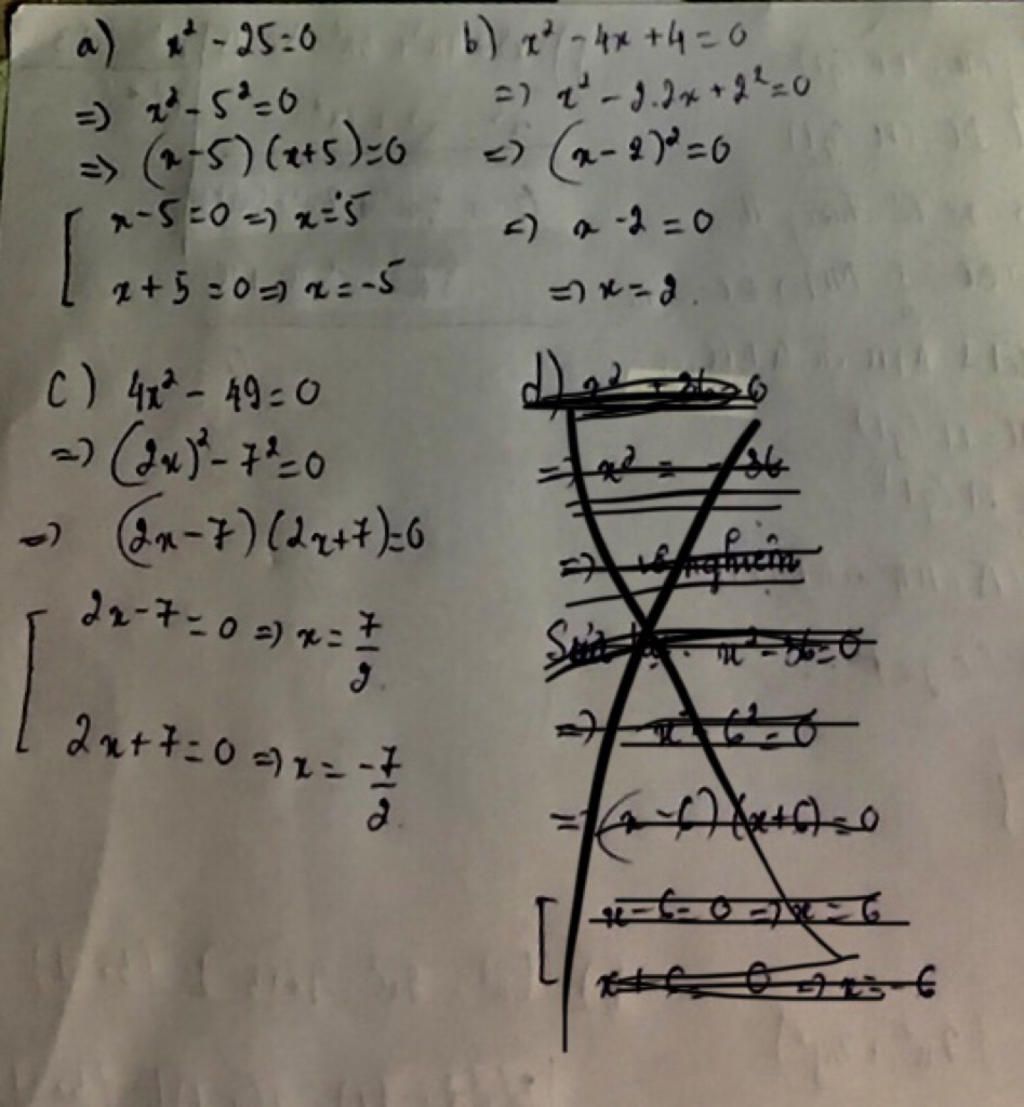 a) x² - 25 = 0
=> x² - 5² = 0
=> (x - 5) (x + 5) = 0
[ x - 5 = 0 => x = 5
x + 5 = 0 => x = -5
b) x² - 4x + 4 = 0
=> x² - 2.2x + 2² = 0
=> (x - 2)² = 0
=> x - 2 = 0
=> x = 2.
c) 4x² - 49 = 0
=> (2x)² - 7² = 0
=> (2x - 7) (2x + 7) = 0
[ 2x - 7 = 0 => x = 7/2
2x + 7 = 0 => x = -7/2
d) x² + 36 = 0
=> x² = -36
=> vô nghiệm
x² - 36 = 0
=> x² - 6² = 0
=> (x - 6) (x + 6) = 0
[ x - 6 = 0 => x = 6
x + 6 = 0 => x = -6